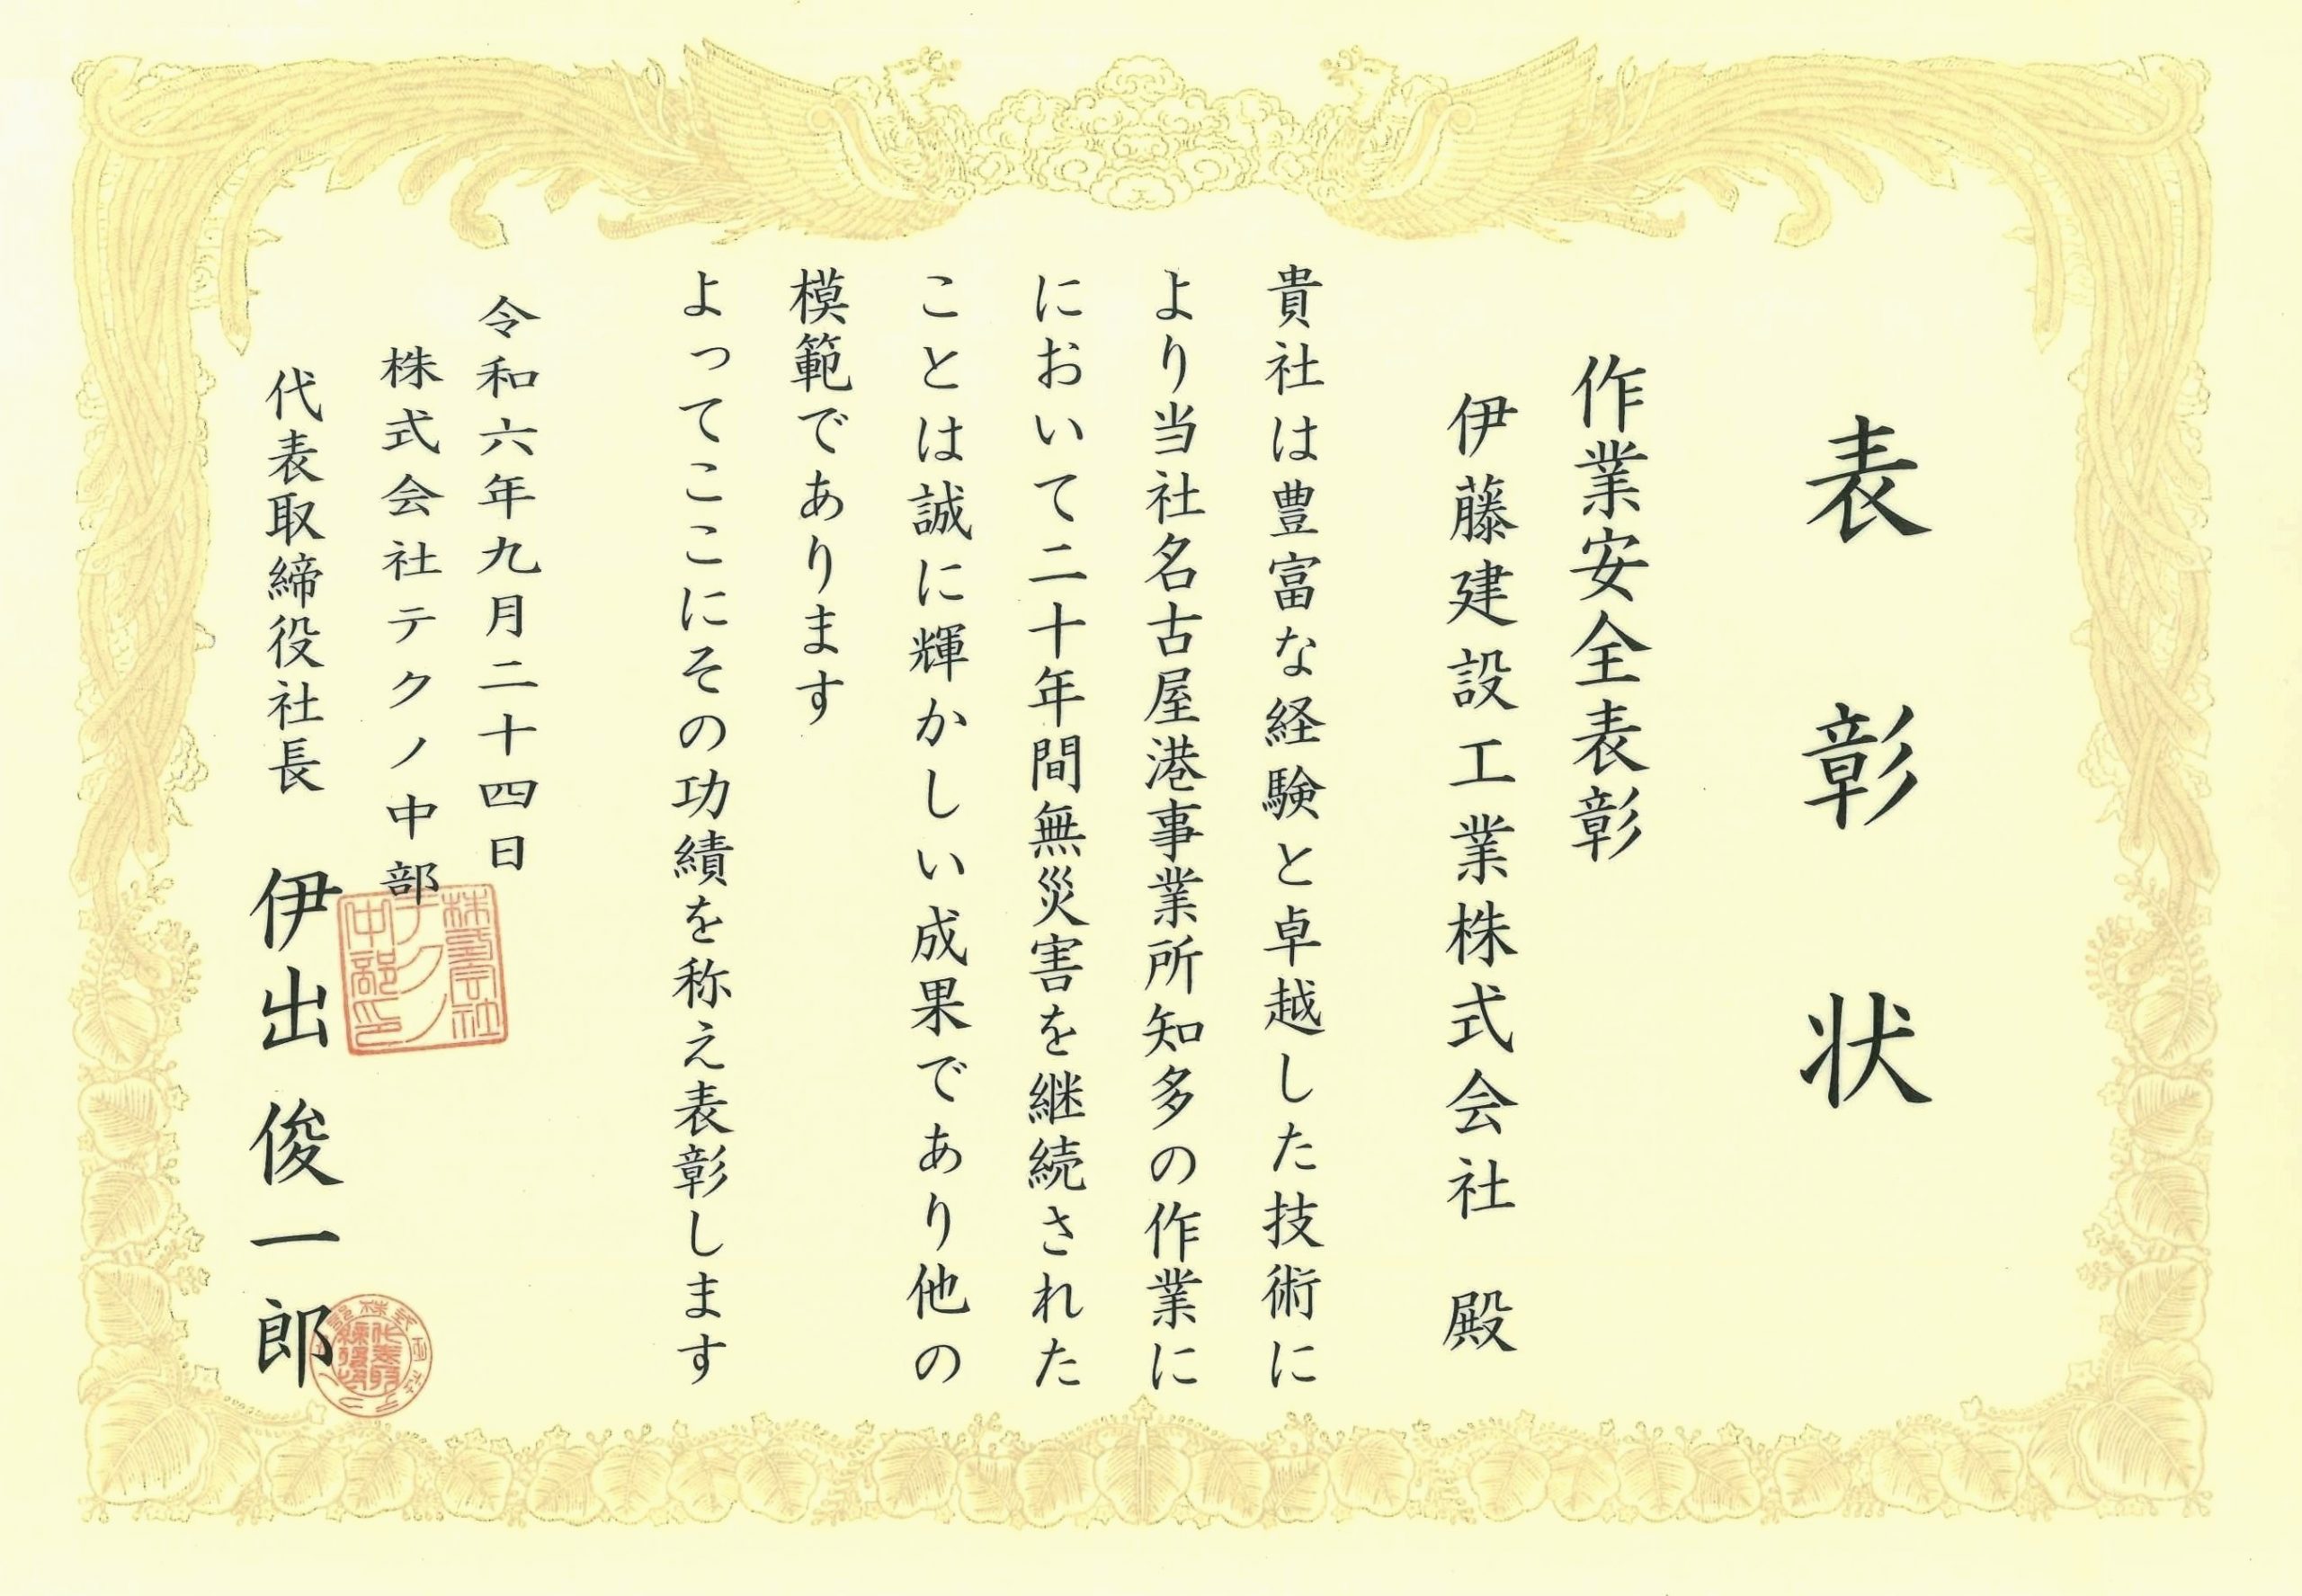 表彰状
作業安全表彰
伊藤建設工業株式会社 殿
貴社は豊富な経験と卓越した技術に
より当社名古屋港事業所知多の作業に
において二十年間無災害を継続された
ことは誠に輝かしい成果であり他の
模範であります
よってここにその功績を称え表彰します
令和六年九月二十四日
株式会社テクノ中部
代表取締役社長 伊出俊一郎
株式会社
テクノ
中部印